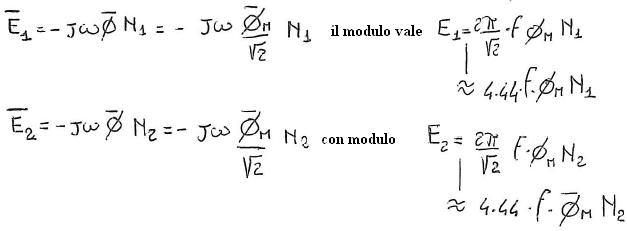 Ē₁ = - Jω Φ̄ N₁ = - Jω Φ̄ₘ/√2 N₁ il modulo vale E₁ = 2π/√2 · f Φₘ N₁
≈ 4.44 · f · Φₘ N₁
Ē₂ = - Jω Φ̄ N₂ = - Jω Φ̄ₘ/√2 N₂ con modulo E₂ = 2π/√2 f · Φₘ N₂
≈ 4.44 · f · Φ̄ₘ N₂